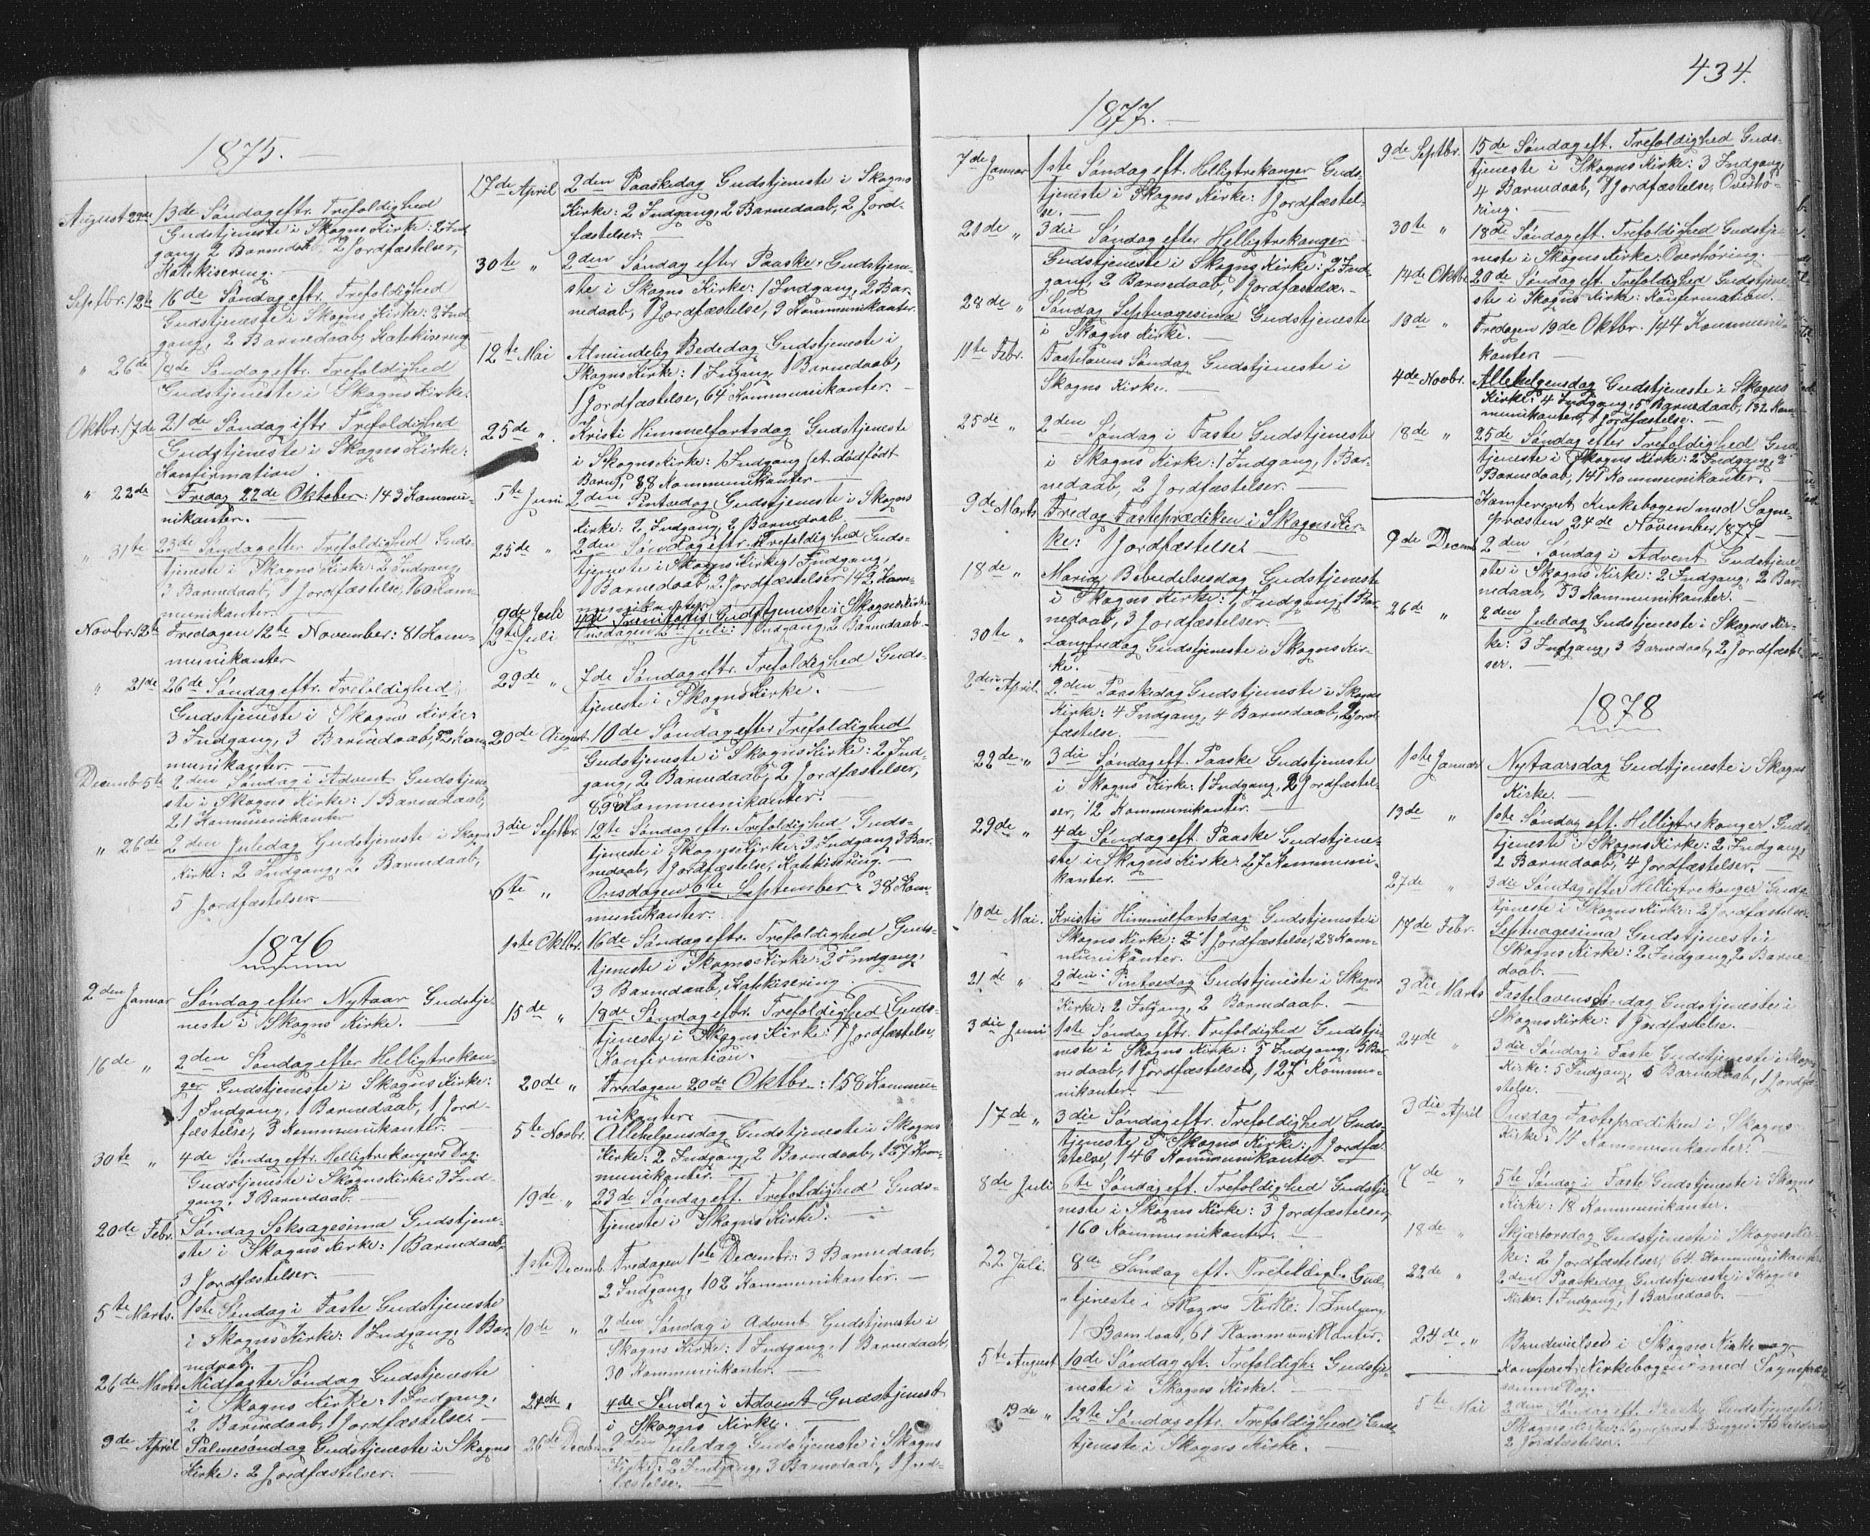 434.
1875.
August 22de 13de Søndag eftr. Trefoldighed
Gudstjeneste i Skogns Kirke: 2 Ind
gang, 2 Barnedaab 2 Jordfæstelser,
Katekisering.
Septbr. 12te 16de Søndag eftr. Trefoldighed
Gudstjeneste i Skogns Kirke: 2 Ind
gang, 2 Barnedaab, Katekisering
" 26de 18de Søndag eftr. Trefoldighed
Gudstjeneste i Skogns Kirke.
Oktbr. 17de 21de Søndag eftr. Trefoldighed
Gudstjeneste i Skogns Kirke:
Konfirmation.
" 22de Fredag 22de Oktober: 143 Kommu-
nikanter.
" 31te 23de Søndag efter Trefoldighed Guds-
tjeneste i Skogns Kirke: 2 Indgang,
3 Barnedaab, 1 Jordfæstelse, 160 Kom-
munikanter.
Novbr. 12te Fredagen 12te November: 81 Kom-
munikanter
" 21de 26de Søndag eftr. Trefoldighed
Gudstjeneste i Skogns Kirke:
3 Indgang, 3 Barnedaab, Kom
munikanter.
Decembr 5te 2den Søndag i Advent Gudstjene
ste i Skogns Kirke: 1 Barnedaab,
21 Kommunikanter
" 26de 2den Juledag Gudstjeneste i Skogns
Kirke: 2 Indgang, 2 Barnedaab,
5 Jordfæstelser
1876
2den Januar Søndag efter Nytaar Gudstje-
neste i Skogns Kirke.
16de " 2den Søndag efter Helligtrekon-
ger Gudstjeneste i Skogns Kirke:
1 Indgang, 1 Barnedaab, 1 Jord-
fæstelse, 3 Kommunikanter.
30te " 4de Søndag eftr. Helligtrekongers Dag.
Gudstjeneste i Skogns Kirke: 3 Ind-
gang, 3 Barnedaab.
20de Febr. Søndag Seksagesima Gudstjene-
ste i Skogns Kirke: 1 Barnedaab
3 Jordfæstelser.
5te Marts. 1ste Søndag i Faste Gudstjeneste
i Skogns Kirke: 1 Indgang, 1 Bar-
nedaab.
26de Marts Midfaste Søndag Gudstjeneste
i Skogns Kirke: 1 Indgang,
2 Barnedaab, 1 Jordfæstelse
9de April Palmesøndag Gudstjeneste i Skogns
Kirke: 2 Jordfæstelser.
17de April 2den Paaskedag Gudstjeneste i Skogns
Kirke: 2 Indgang, 2 Barnedaab, 2 Jord-
fæstelser.
30te " 2den Søndag efter Paaske, Gudstjene-
ste i Skogns Kirke: 1 Indgang, 2 Bar-
nedaab, 1 Jordfæstelse, 9 Kommunikanter.
12te Mai Almindelig Bededag Gudstjeneste i
Skogns Kirke: 1 Indgang, 1 Barnedaab,
1 Jordfæstelse, 64 Kommunikanter.
25de " Kristi Himmelfartsdag Gudstjeneste
i Skogns Kirke: 1 Indgang (et dødfødt
Barn), 88 Kommunikanter
5te Juni 2den Pintsedag Gudstjeneste i Skogns
Kirke: 2 Indgang, 2 Barnedaab
25de " 2den Søndag eftr. Trefoldighed Guds-
tjeneste i Skogns Kirke, 1 Indgang,
1 Barnedaab, 2 Jordfæstelser 142 Kom-
munikanter
9de Juli 4de Trinitatis Gudstjeneste i Skogns Kirke
12te Juli Onsdagen 12te Juli: 1 Indgang, 2 Barnedaab.
29de " 7de Søndag eftr. Trefoldighed Guds-
tjeneste i Skogns Kirke.
20de August 10de Søndag efter Trefoldighed
Gudstjeneste i Skogns Kirke: 2 Ind-
gang, 2 Barnedaab, 2 Jordfæstelser,
Kommunikanter.
3die Septbr. 12te Søndag eftr. Trefoldighed Guds-
tjeneste i Skogns Kirke: 3 Indgang 3 Bar-
nedaab, 1 Jordfæstelse, Katekisering.
6te " Onsdagen 6te September: 38 Kom
munikanter.
1ste Oktbr. 16de Søndag eftr. Trefoldighed Guds-
tjeneste i Skogns Kirke: 2 Indgang,
3 Barnedaab, Katekisering.
15de " 18de Søndag eftr. Trefoldighed Guds-
tjeneste i Skogns Kirke: 1 Jordfæstelse,
Konfirmation.
20de " Fredagen 20de Oktbr.: 158 Kommun-
nikanter.
5te Novbr. Allehelgensdag Gudstjeneste i Skogns
Kirke: 2 Indgang, 2 Barnedaab, 127 Kom-
munikanter.
19de " 23de Søndag eft. Trefoldighed Guds-
tjeneste i Skogns Kirke.
1ste Decemb. Fredagen 1ste Decembr: 3 Barnedaab,
2 Indgang, 102 Kommunikanter.
10de " 2den Søndag i Advent Gudstjeneste i
Skogns Kirke: 1 Indgang, 1 Barnedaab,
30 Kommunikanter.
24de " 4de Søndag i Advent Gudstjenest
i Skogns Kirke.
26de Decbr 2den Juledag Gudstjeneste i Skogns
Kirke: 2 Indgang, 3 Barnedaab, 1 Jord-
fæstelse.
1877.
7de Januar 1ste Søndag eft. Helligtrekonger Guds-
tjeneste i Skogns Kirke: 1 Jordfæstel-
se.
21de " 3die Søndag efter Helligtrekonger
Gudstjeneste i Skogns Kirke: 2 Ind
gang, 2 Barnedaab, 1 Jordfæstelse.
28de " Søndag Septuagesima Gudstjeneste
i Skogns Kirke.
11te Febr. Fastelavens Søndag Gudstjeneste i
Skogns Kirke.
25de " 2den Søndag i Faste Gudstjeneste
i Skogns Kirke: 1 Indgang, 1 Bar-
nedaab, 2 Jordfæstelser.
9de Marts Fredag Fasteprædiken i Skogns Kir-
ke: 1 Jordfæstelse
18de " Mariæ Bebudelsesdag Gudstjeneste
i Skogns Kirke: 1 Indgang, 1 Bar-
nedaab, 3 Jordfæstelser.
30te " Langfredag Gudstjeneste i Skogns Kir-
ke.
2den April. 2den Paaskedag Gudstjeneste i Skogns
Kirke: 4 Indgang, 4 Barnedaab, 2 Jord
fæstelse.
22de " 3die Søndag eft. Paaske Gudstjeneste
i Skogns Kirke: 1 Indgang, 2 Jordfæstel-
ser, 12 Kommunikanter.
29de " 4de Søndag eft. Paaske Gudstjene-
ste i Skogns Kirke: 27 Kommuni-
kanter.
10de Mai. Kristi Himmelfartsdag Gudstjeneste i
Skogns Kirke: 1 Jordfæstelse, 28 Kom-
munikanter.
21de " 2den Pintsedag Gudstjeneste i Skogns
Kirke: 2 Indgang, 2 Barnedaab.
3die Juni 1ste Søndag eftr. Trefoldighed Gudstje-
neste i Skogns Kirke: 5 Indgang, 5 Bar
nedaab, 1 Jordfæstelse, 127 Kommu-
nikanter.
17de " 3die Søndag eftr. Trefoldighed Guds-
tjeneste i Skogns Kirke: 1 Jordfæ-
stelse, 146 Kommunikanter
8de Juli 6te Søndag eft. Trefoldighed Gudstje
neste i Skogns Kirke: 3 Jordfæstelser,
160 Kommunikanter.
22 Juli. 8de Søndag eft. Trefoldigh. Gud
tjeneste i Skogns Kirke: 1 Indgang
1 Barndaab, 61 Kommunikanter.
5te August 10de Søndag eft. Trefoldigh. Gudstje-
neste i Skogns Kirke.
19de " 12te Søndag eftr. Trefoldighed Guds-
tjeneste i Skogns Kirke.
9de Septbr. 15de Søndag eft. Trefoldighed Guds-
tjeneste i Skogns Kirke: 3 Indgang,
4 Barnedaab, 1 Jordfæstelse, Overhø-
ring.
30te " 18de Søndag eft. Trefoldighed Gudstje-
neste i Skogns Kirke: Overhøring.
14de Oktbr. 20de Søndag eft. Trefoldighed Gudstjene-
ste i Skogns Kirke: Konfirmation.
19de " Fredagen 19de Oktbr. 144 Kommuni-
kanter
4de Novbr. Allehelgensdag Gudstjeneste i Skogns
Kirke: 4 Indgang, 5 Barnedaab, 132 Kom-
munikanter, 1 Jordfæstelse.
18de " 25de Søndag efter Trefoldighed Guds
tjeneste i Skogns Kirke: 2 Indgang, 2
Barnedaab, 141 Kommunikanter.
Konfereret Kirkebogen med Sogne-
præsten 24de November 1877
9de Decemb 2den Søndag i Advent Gudstjene-
ste i Skogns Kirke: 2 Indgang, 2 Bar-
nedaab, 53 Kommunikanter.
26de " 2den Juledag Gudstjeneste i Skogns Kir-
ke: 3 Indgang, 3 Barnedaab, 2 Jordfæstel
ser.
1878
1ste Januar Nytaarsdag Gudtjeneste i Skogns
Kirke.
13de " 1ste Søndag eft. Helligtrekonger Guds-
tjeneste i Skogns Kirke: 2 Indgang,
2 Barnedaab, 4 Jordfæstelser.
27de " 3die Søndag efter Helligtrekonger Guds
tjeneste i Skogns Kirke: 2 Jordfæstelser
17de Febr. Septuagesima Gudstjeneste i
Skogns Kirke: 2 Indgang, 2 Barne-
daab.
3die Marts Fastelavens Søndag Gudstjeneste i
Skogns Kirke: 1 Jordfæstelse.
24de " 3die Søndag i Faste Gudstjeneste i Skogns
Kirke: 5 Indgang, 5 Barnedaab, 1 Jordfæ
stelse.
3die April Onsdag Fasteprædiken i Skogns
Kirke: 14 Kommunikanter.
7de " 5te Søndag i Faste Gudstjeneste i Skogns
Kirke: 18 Kommunikanter.
18de " Skjærtorsdag Gudstjeneste i Skogns Kir-
ke: 2 Jordfæstelser, 64 Kommunikanter
22de " 2den Paaskedag Gudstjeneste i Skogns
Kirke: 1 Indgang, 1 Barnedaab.
24de " i Skogns Kirke og
Konfereret Kirkebogen med Sognepræst
samme Dag.
5te Mai 2den Søndag eft. Paaske Gudstjeneste i
Skogns Kirke:
2 Jordfæstelser.